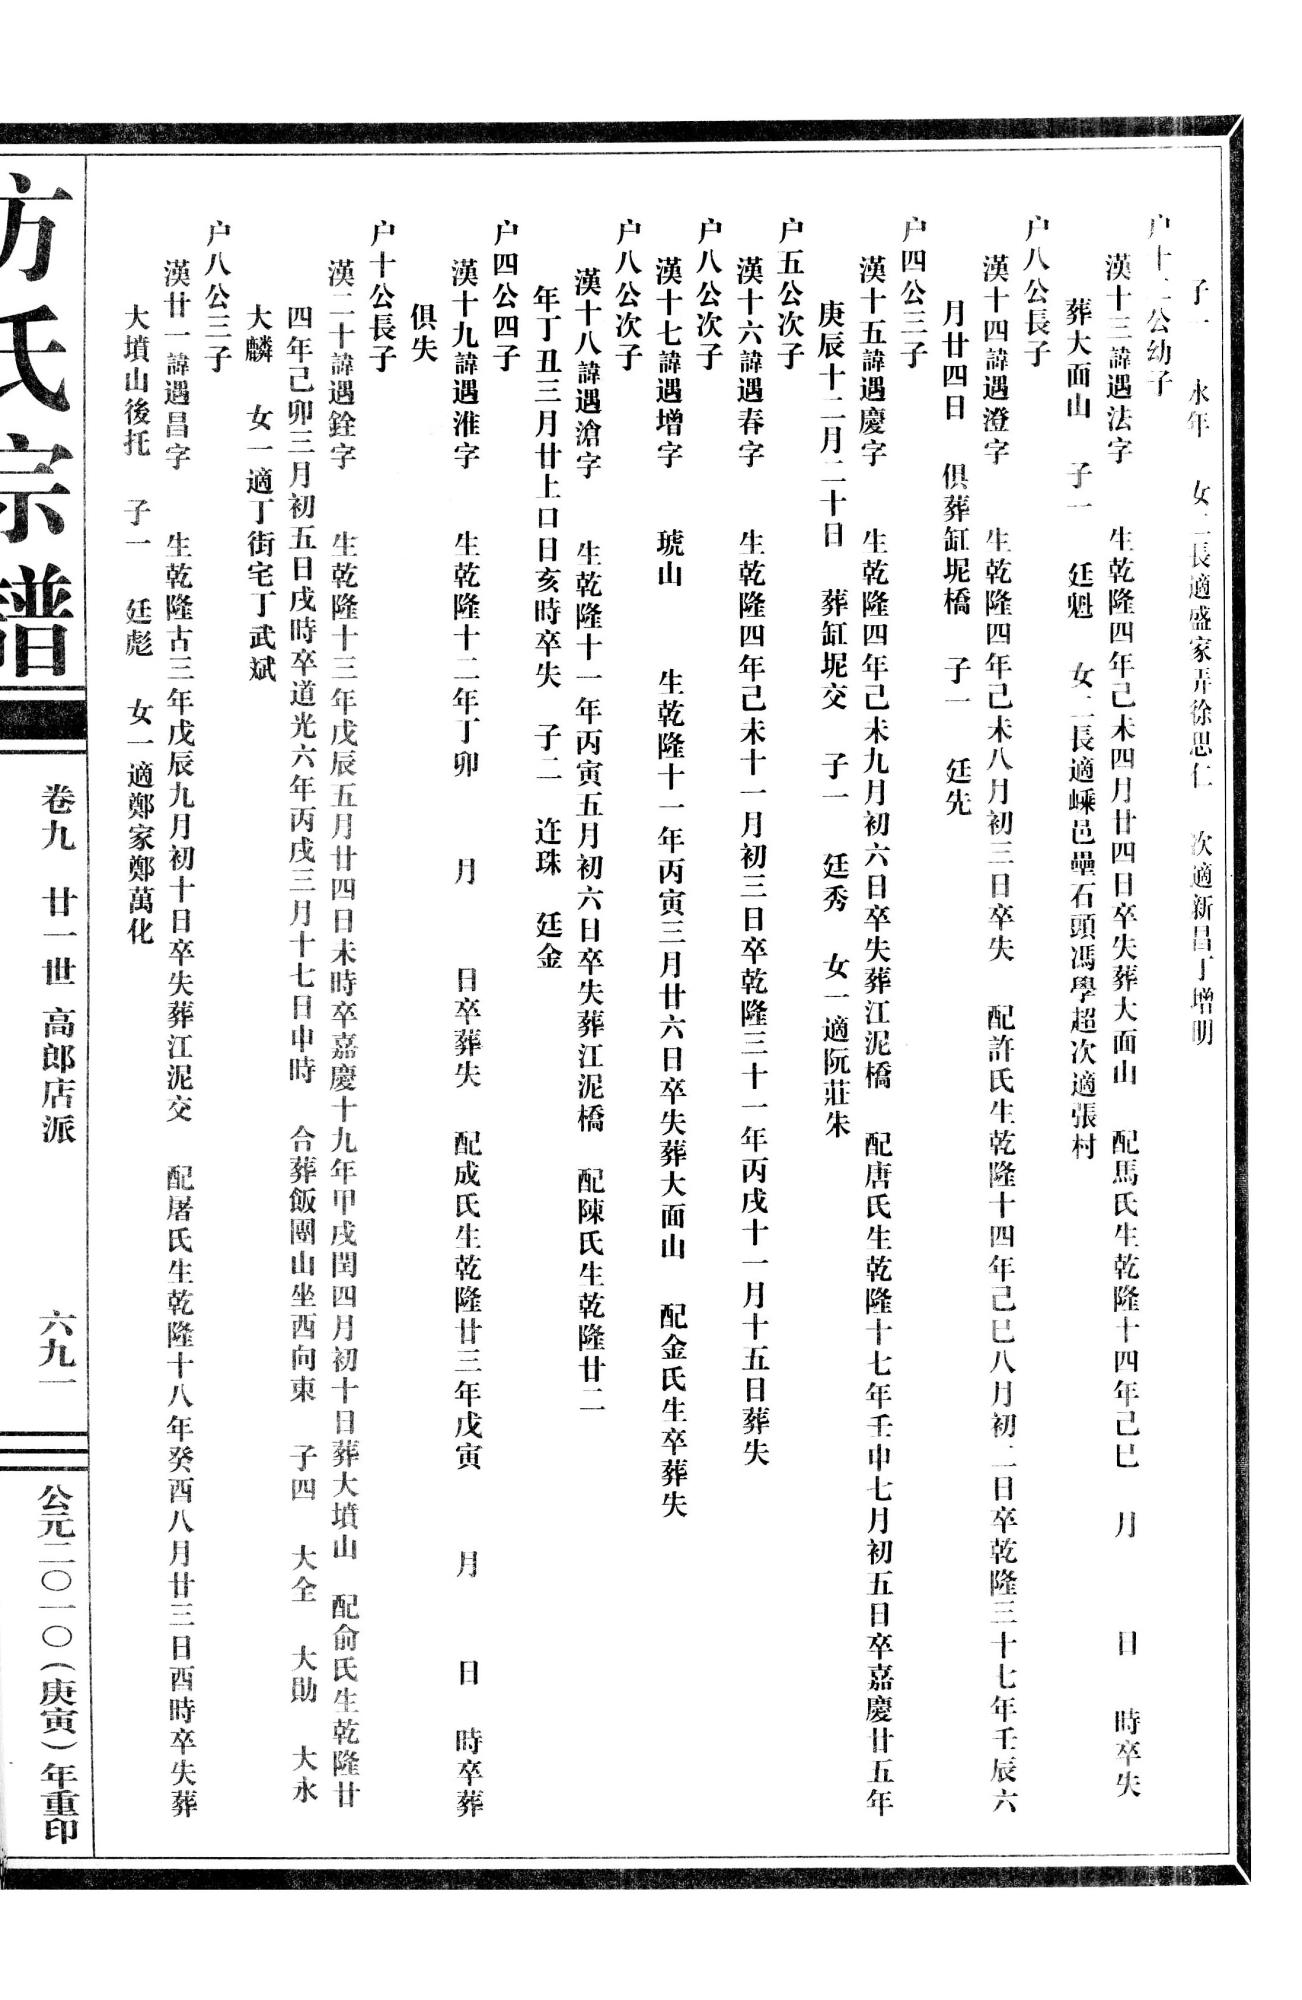 子一　永年　女二長適盛家弄徐思仁　次適新昌丁增明
户十二公幼子
漢十三諱遇法字　生乾隆四年己未四月廿四日卒失葬大面山　配馬氏生乾隆十四年己巳　月　日　時卒失
葬大面山　子一　廷魁　女二長適嵊邑壘石頭馮學超次適張村
户八公長子
漢十四諱遇澄字　生乾隆四年己未八月初三日卒失　配許氏生乾隆十四年己巳八月初二日卒乾隆三十七年壬辰六
月廿四日　俱葬缸坭橋　子一　廷先
户四公三子
漢十五諱遇慶字　生乾隆四年己未九月初六日卒失葬江泥橋　配唐氏生乾隆十七年壬申七月初五日卒嘉慶廿五年
庚辰十二月二十日　葬缸坭交　子一　廷秀　女一適阮莊朱
户五公次子
漢十六諱遇春字　生乾隆四年己未十一月初三日卒乾隆三十一年丙戌十一月十五日葬失
户八公次子
漢十七諱遇增字　琥山　生乾隆十一年丙寅三月廿六日卒失葬大面山　配金氏生卒葬失
户八公次子
漢十八諱遇滄字　生乾隆十一年丙寅五月初六日卒失葬江泥橋　配陳氏生乾隆廿二
年丁丑三月廿上口日亥時卒失　子二　迕珠　廷金
户四公四子
漢十九諱遇淮字　生乾隆十二年丁卯　月　日卒葬失　配成氏生乾隆廿三年戊寅　月　日　時卒葬
俱失
户十公長子
漢二十諱遇銓字　生乾隆十三年戊辰五月廿四日未時卒嘉慶十九年甲戌閏四月初十日葬大墳山　配俞氏生乾隆廿
四年己卯三月初五日戌時卒道光六年丙戌三月十七日申時　合葬飯團山坐西向東　子四　大全　大勛　大永
大麟　女一適丁街宅丁武斌
户八公三子
漢廿一諱遇昌字　生乾隆古三年戊辰九月初十日卒失葬江泥交　配屠氏生乾隆十八年癸酉八月廿三日酉時卒失葬
大墳山後托　子一　廷彪　女一適鄭家鄭萬化
方氏宗譜　卷九　廿一世　高郎店派　六九一　公元二〇一〇（庚寅）年重印